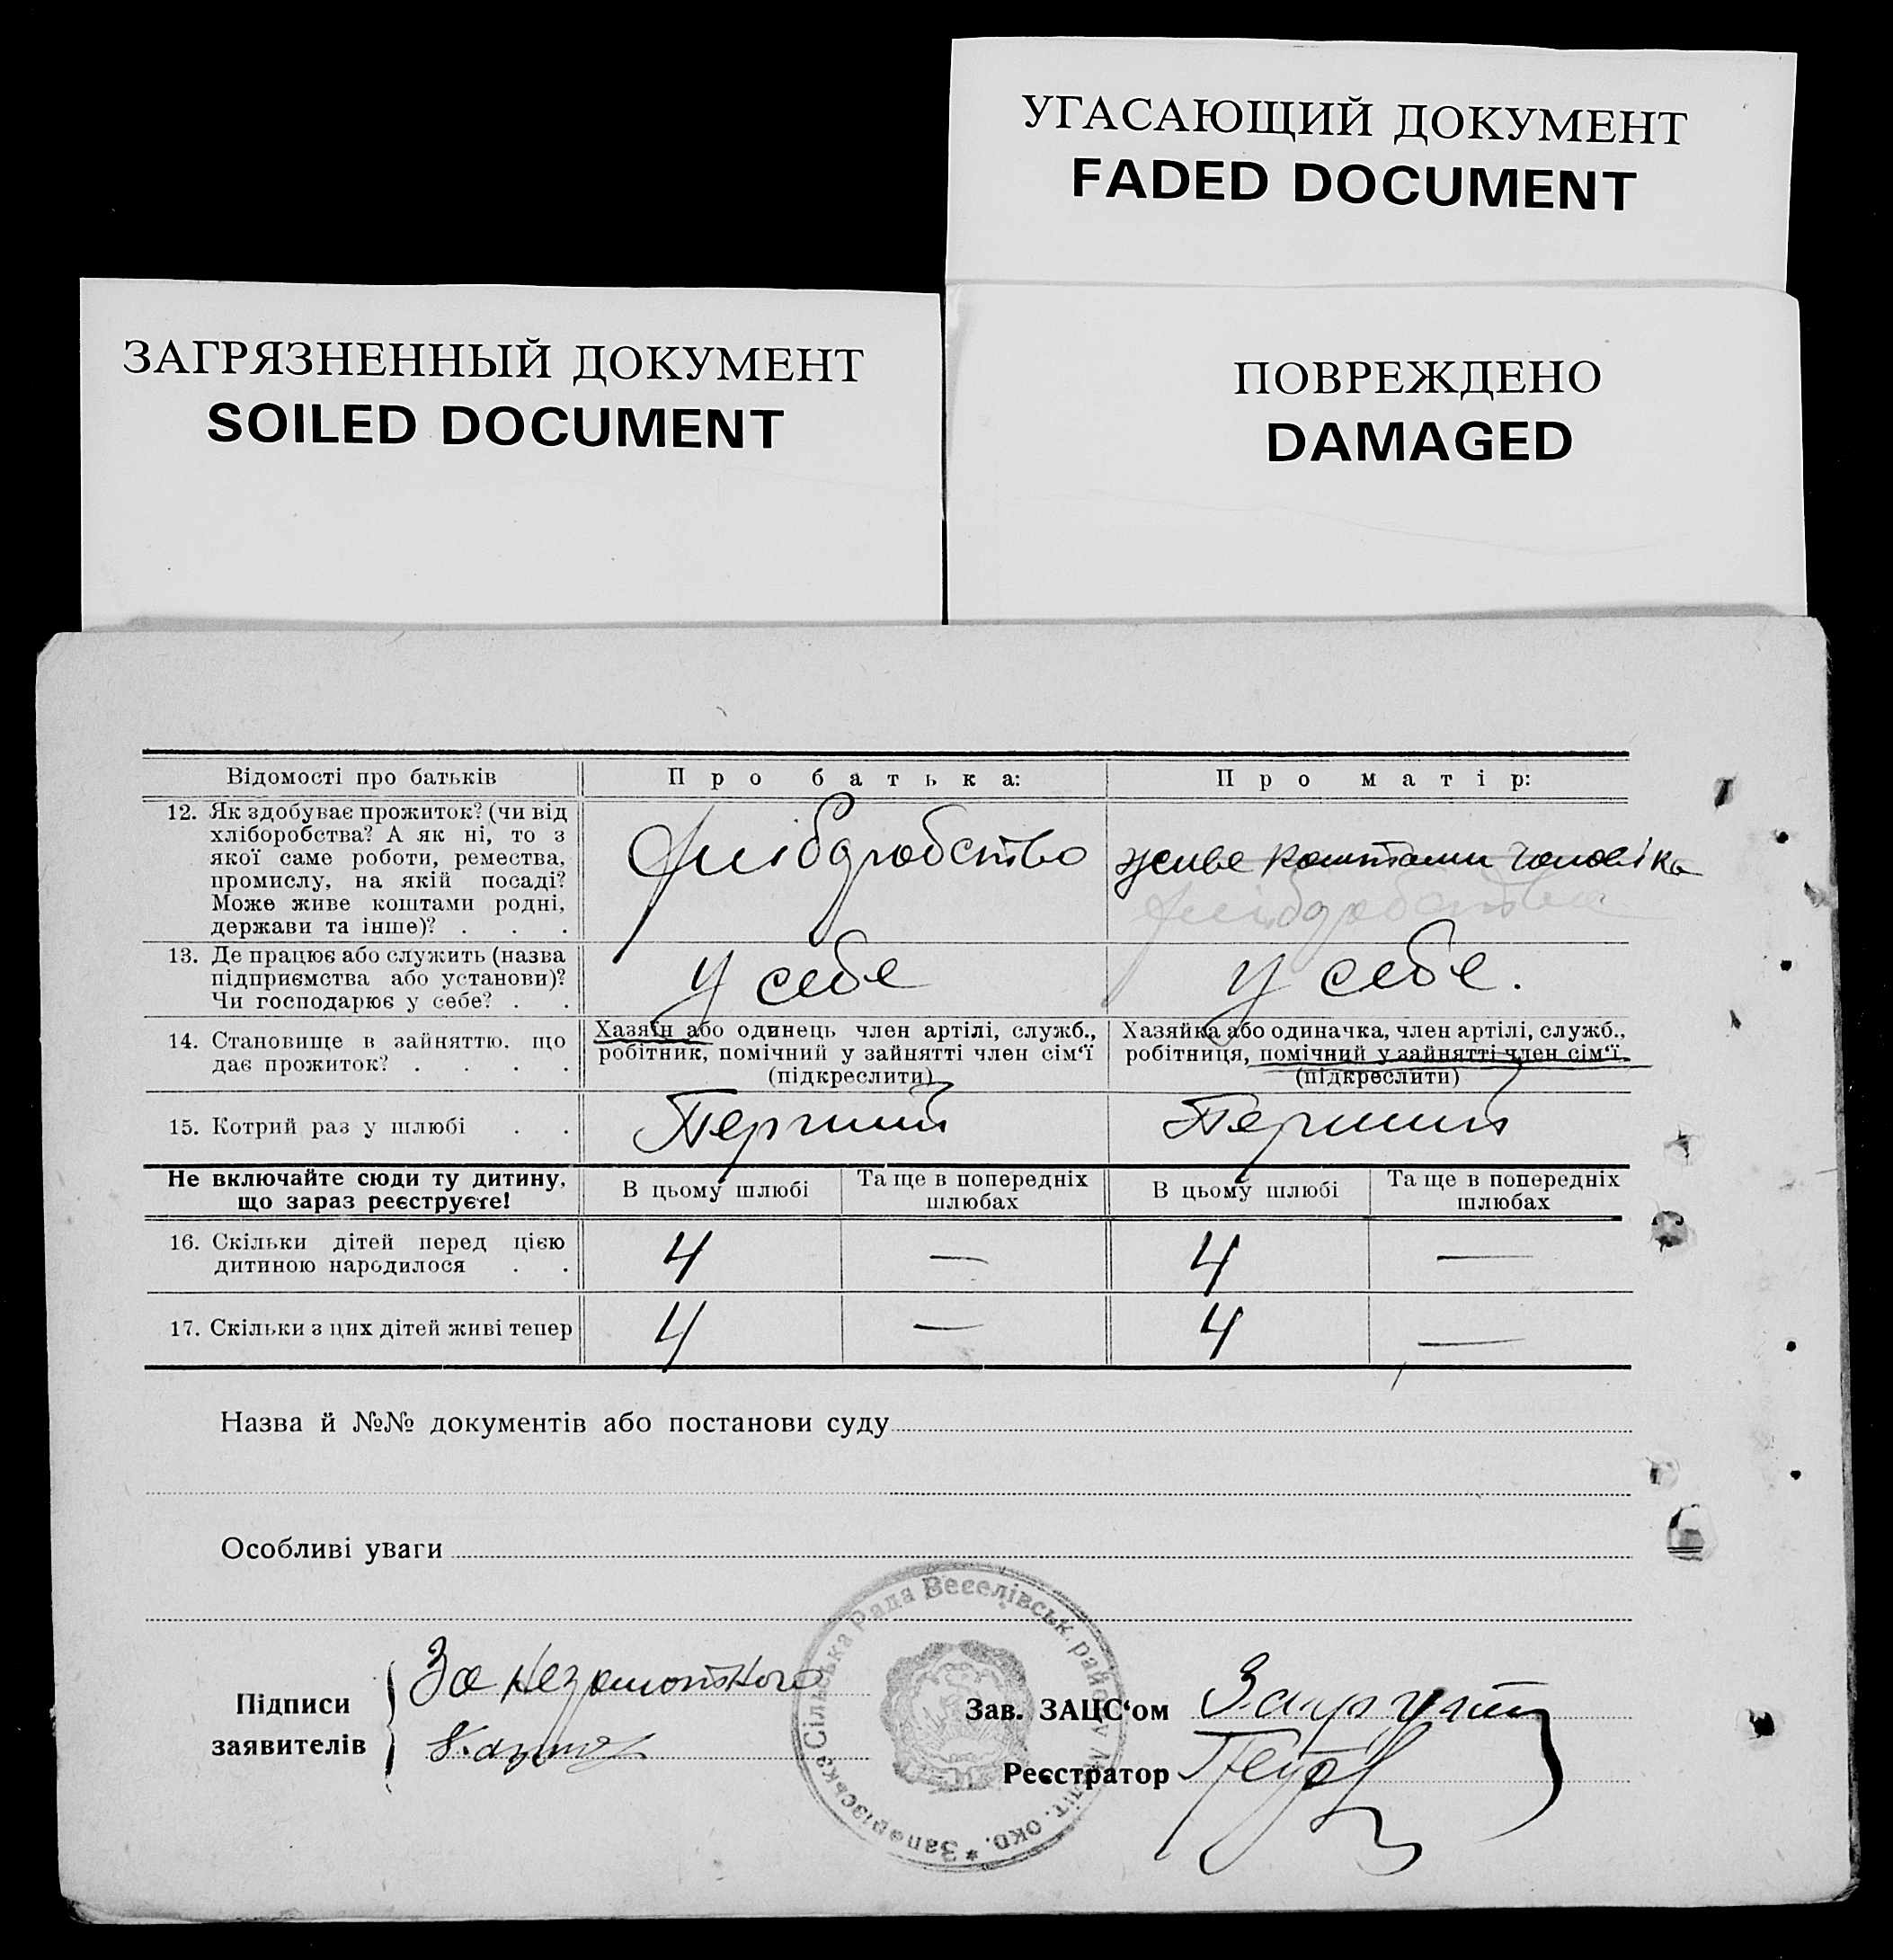 УГАСАЮЩИЙ ДОКУМЕНТ
FADED DOCUMENT
ЗАГРЯЗНЕННЫЙ ДОКУМЕНТ
SOILED DOCUMENT
ПОВРЕЖДЕНО
DAMAGED
Відомості про батьків
Про батька:
Про матір:
12. Як здобуває прожиток? (чи від
хліборобства? А як ні, то з
якої саме роботи, ремества,
промислу, на якій посаді?
Може живе коштами родні,
держави та інше)? . . .
хліборобство
живе коштами чоловіка
хліборобства
13. Де працює або служить (назва
підприємства або установи)?
Чи господарює у себе? . .
у себе
у себе.
14. Становище в зайняттю, що
дає прожиток? . . . .
Хазяїн або одинець член артілі, служб.,
робітник, помічний у зайнятті член сім'ї
(підкреслити)
Хазяйка або одиначка, член артілі, служб.,
робітниця, помічний у зайнятті член сім'ї
(підкреслити)
15. Котрий раз у шлюбі . .
Перший
Перший
Не включайте сюди ту дитину,
що зараз реєструєте!
В цьому шлюбі
Та ще в попередніх
шлюбах
В цьому шлюбі
Та ще в попередніх
шлюбах
16. Скільки дітей перед цією
дитиною народилося . .
4 — 4 —
17. Скільки з цих дітей живі тепер
4 — 4 —
Назва й №№ документів або постанови суду
Особливі уваги
Підписи
заявителів
За
Зав. ЗАЦС'ом
Реєстратор
Запорізська Сільська Рада Веселівськ. району Меліт. окр. *